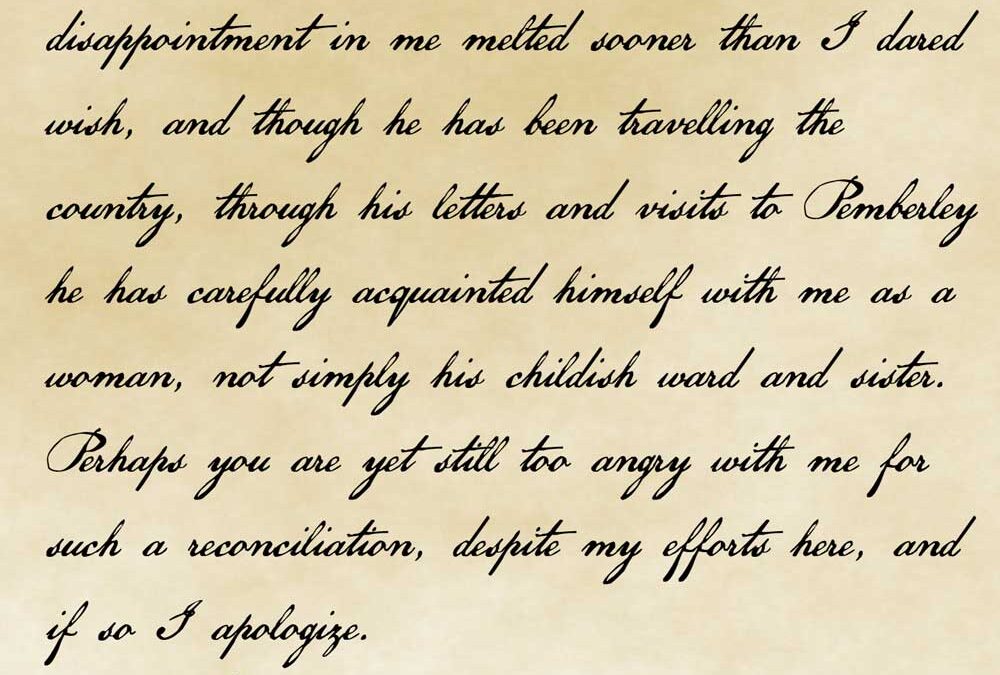 disappointment in me melted sooner than I dared
wish, and though he has been travelling the
country, through his letters and visits to Pemberley
he has carefully acquainted himself with me as a
woman, not simply his childish ward and sister.
Perhaps you are yet still too angry with me for
such a reconciliation, despite my efforts here, and
if so I apologize.